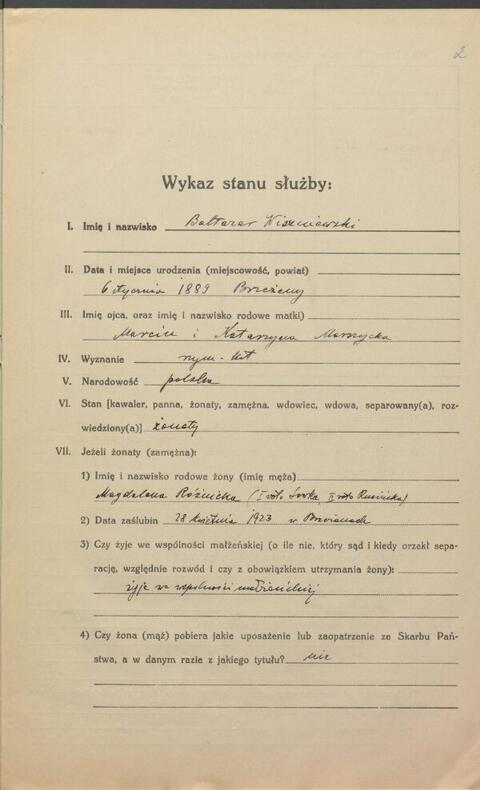 2
Wykaz stanu służby:
I. Imię i nazwisko Baltazar Wiszniewski
II. Data i miejsce urodzenia (miejscowość, powiat)
6 stycznia 1889 Brzeżany
III. Imię ojca, oraz imię i nazwisko rodowe matki)
Marcin i Katarzyna
IV. Wyznanie rzym.-kat
V. Narodowość polska
VI. Stan [kawaler, panna, żonaty, zamężna, wdowiec, wdowa, separowany(a), roz-
wiedziony(a)] żonaty
VII. Jeżeli żonaty (zamężna):
1) Imię i nazwisko rodowe żony (imię męża)
Magdalena Różnicka (I voto II voto
2) Data zaślubin 28 kwietnia 1923 w
3) Czy żyje we wspólności małżeńskiej (o ile nie, który sąd i kiedy orzekł sepa-
rację, względnie rozwód i czy z obowiązkiem utrzymania żony):
żyje we wspólności małżeńskiej
4) Czy żona (mąż) pobiera jakie uposażenie lub zaopatrzenie ze Skarbu Pań-
stwa, a w danym razie z jakiego tytułu? nie